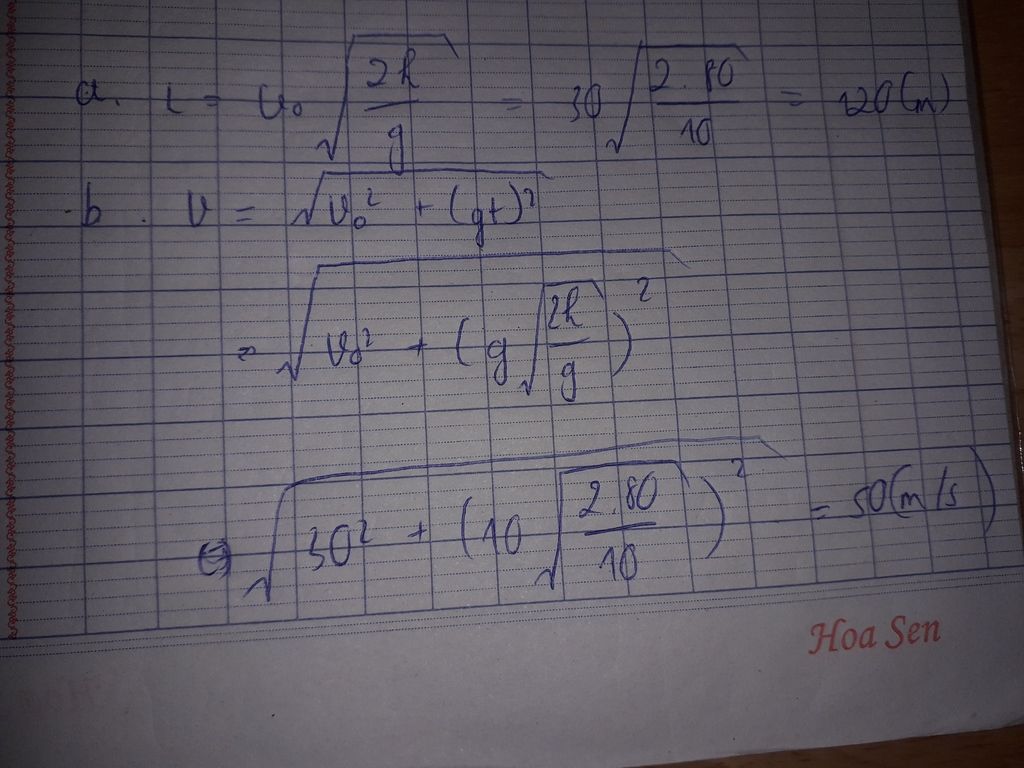 a. L = v₀ √(2h/g) = 30 √(2.80/10) = 120 (m)
b. v = √(v₀² + (gt)²)
= √(v₀² + (g √(2h/g))²)
= √(30² + (10 √(2.80/10))²) = 50 (m/s)
Hoa Sen